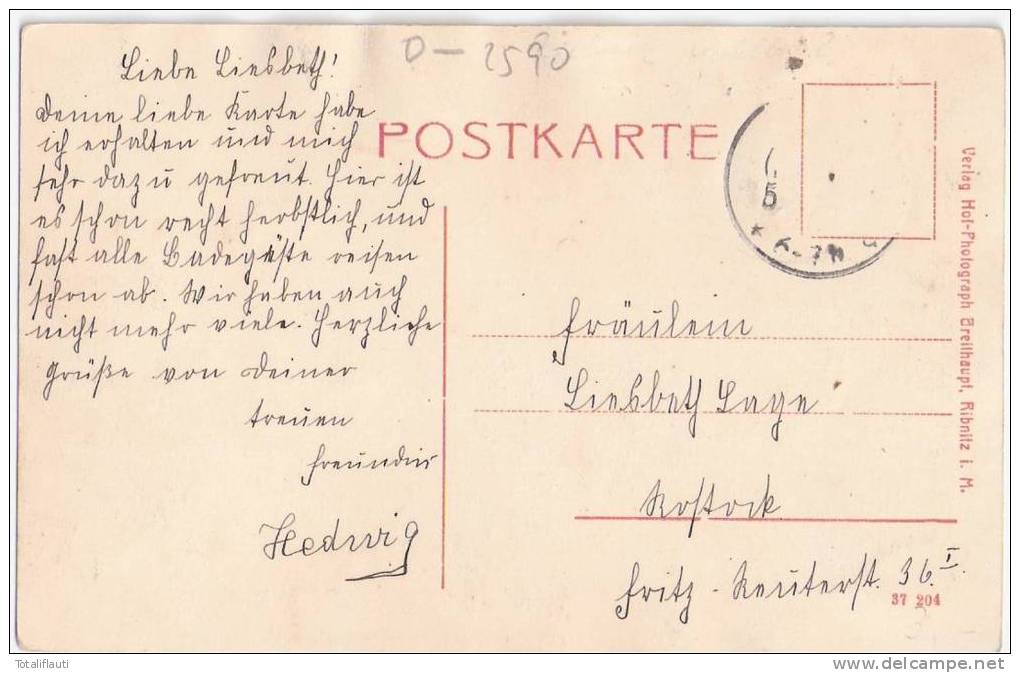 D-2590
Liebe Liesbeth!
Deine liebe Karte habe
ich erhalten und mich
sehr dazu gefreut. Hier ist
es schon recht herbstlich, und
fast alle Badegäste reisen
schon ab. Wir haben auch
nicht mehr viele. Herzliche
Grüße von Deiner
treuen
Freundin
Hedwig
POSTKARTE
5
* 6-7N
Fräulein
Liesbeth Lage
Rostock
Fritz-Reuterst. 36 I.
37 204
Verlag Hof-Photograph Breilhaupt, Ribnitz i. M.
Totaliflauti
delcampe.net